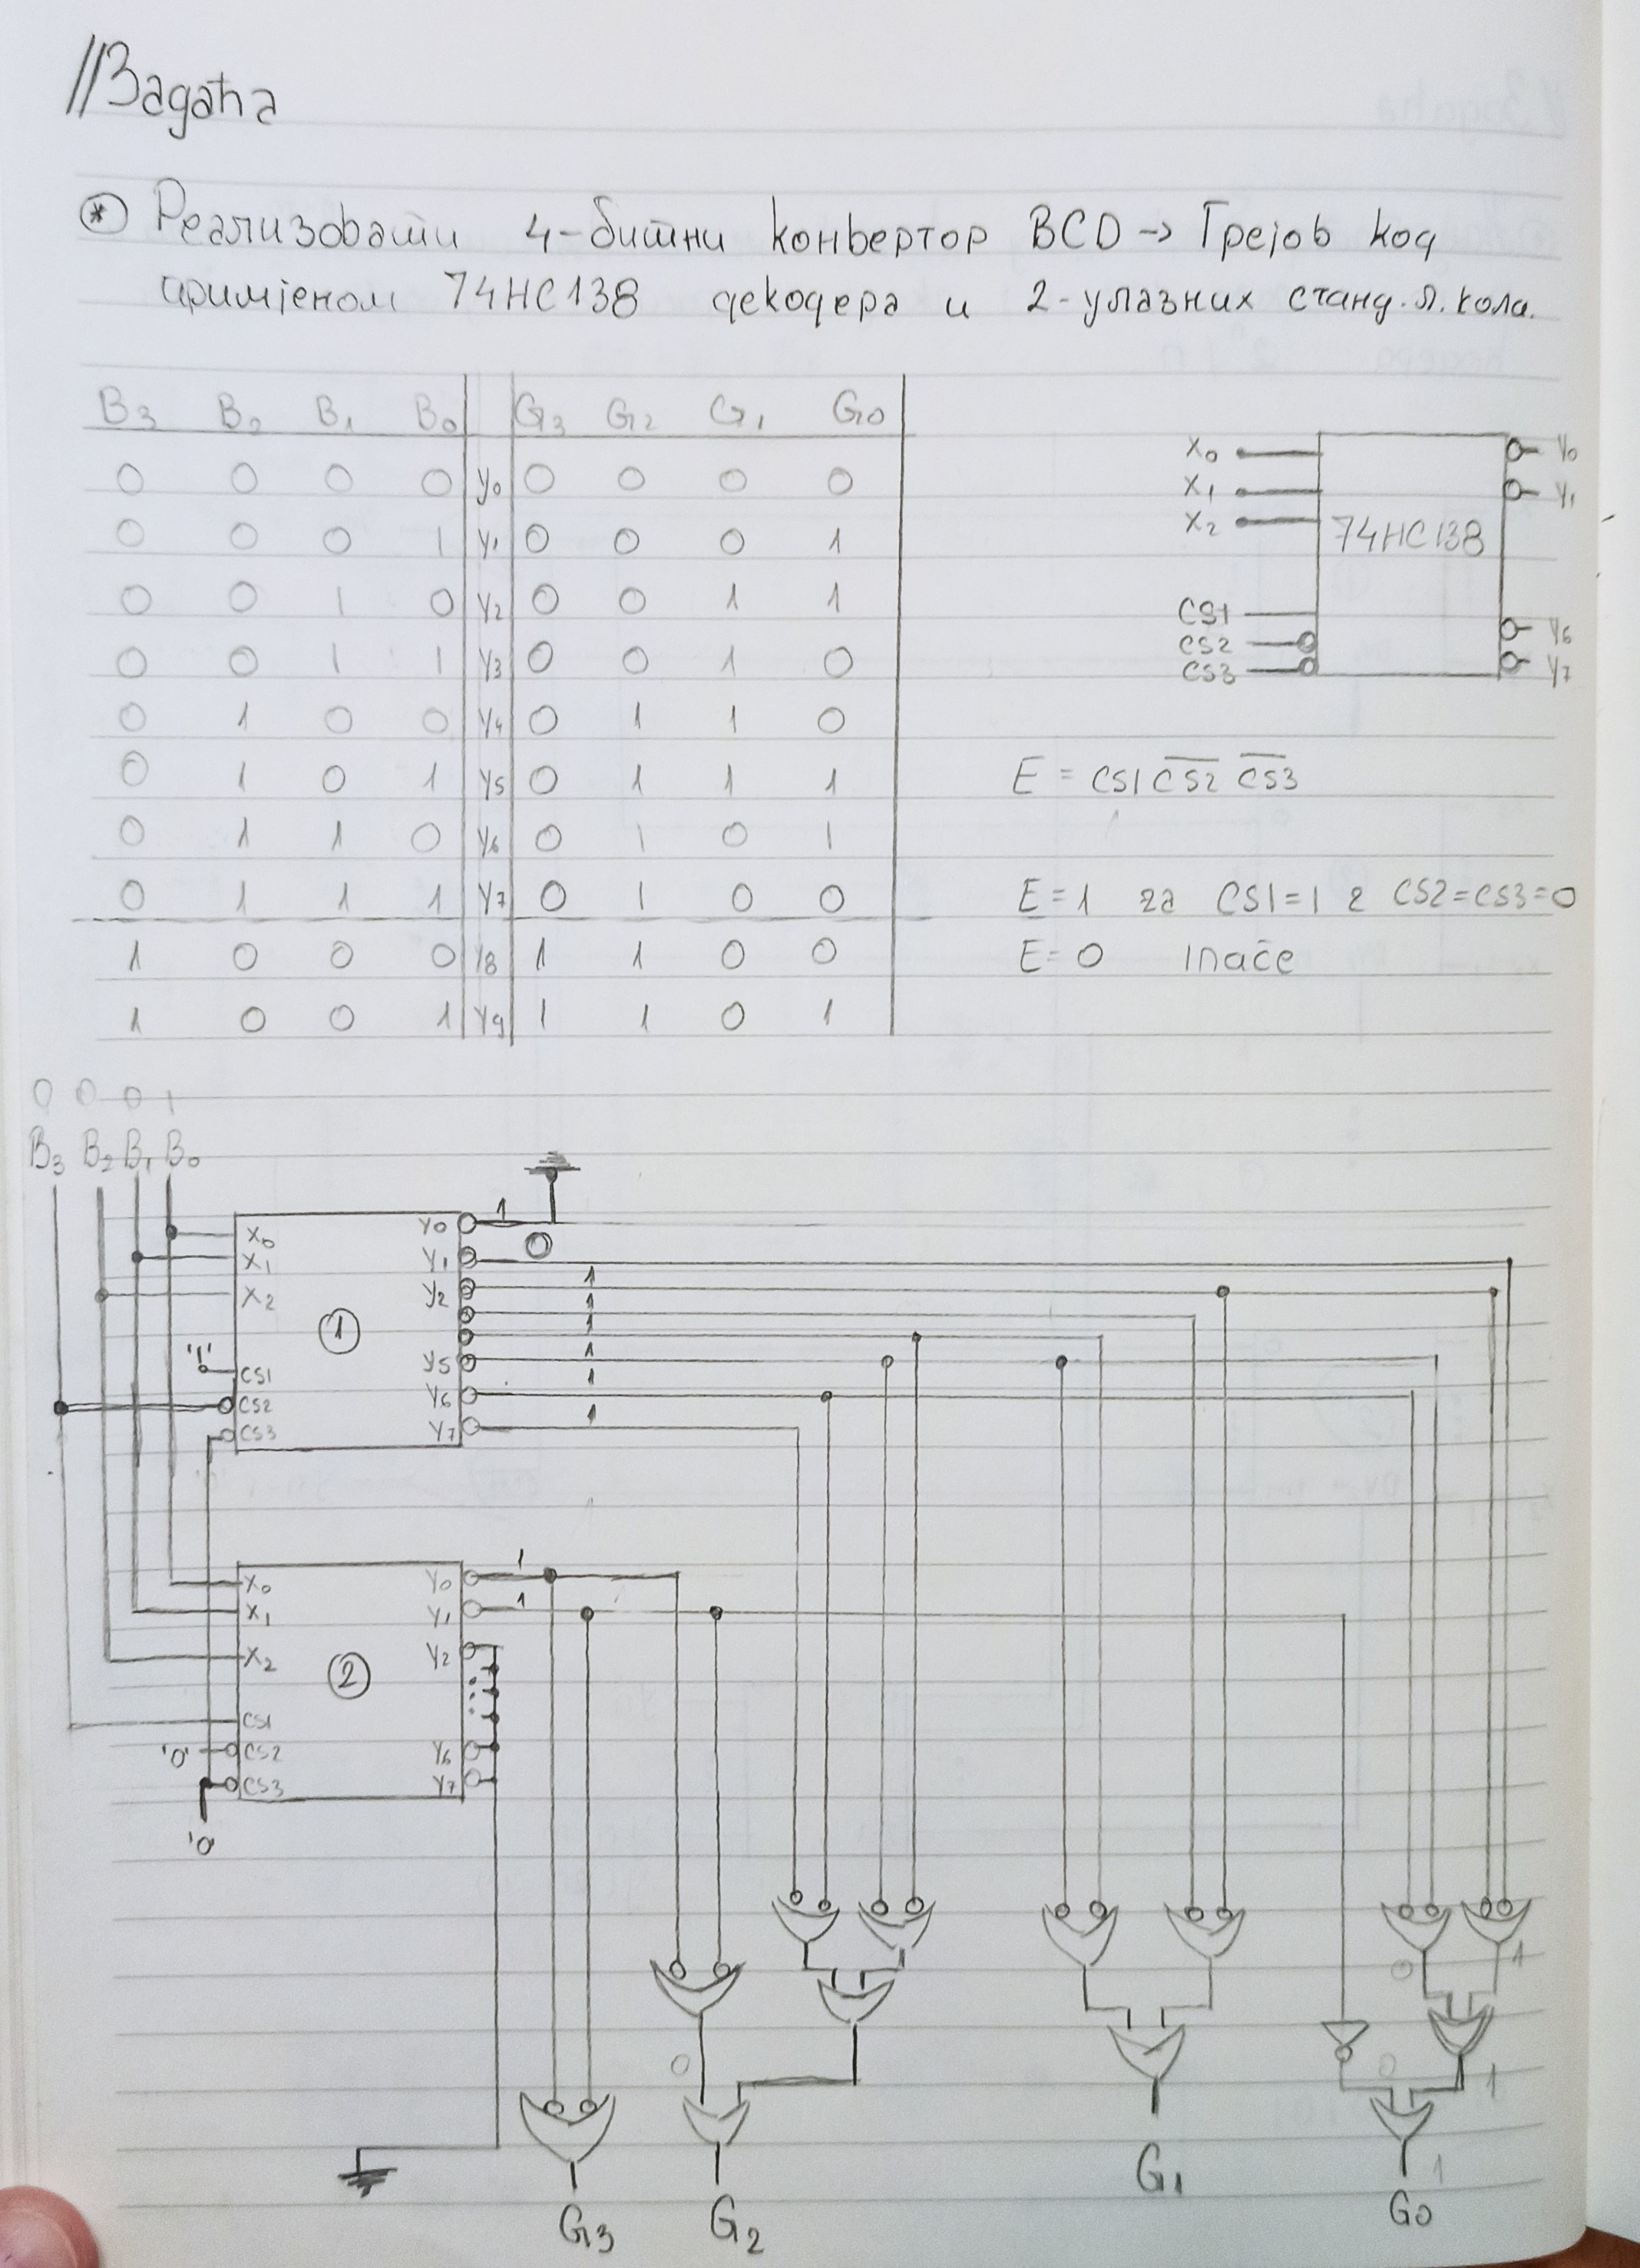 //Задаћа
* Реализовати 4-битни конвертор BCD → Грејов код
примјеном 74HC138 декодера и 2-улазних станд. л. кола.
B3 B2 B1 B0 G3 G2 G1 G0
0 0 0 0 y0 0 0 0 0
0 0 0 1 y1 0 0 0 1
0 0 1 0 y2 0 0 1 1
0 0 1 1 y3 0 0 1 0
0 1 0 0 y4 0 1 1 0
0 1 0 1 y5 0 1 1 1
0 1 1 0 y6 0 1 0 1
0 1 1 1 y7 0 1 0 0
1 0 0 0 y8 1 1 0 0
1 0 0 1 y9 1 1 0 1
X0 Y0
X1 Y1
X2
74HC138
CS1
CS2 Y6
CS3 Y7
E = CS1 C̅S̅2̅ C̅S̅3̅
E = 1 за CS1=1 и CS2=CS3=0
E = 0 inače
0 0 0 1
B3 B2 B1 B0
X0 Y0 1
X1 Y1 0
X2 Y2 1
1
1
① 1
'1' CS1 Y5 1
CS2 Y6 1
CS3 Y7
X0 Y0 1
X1 Y1 1
X2 Y2
②
CS1
'0' CS2 Y6
CS3 Y7
'0'
0 1
0 0 1
1
G3 G2 G1 G0